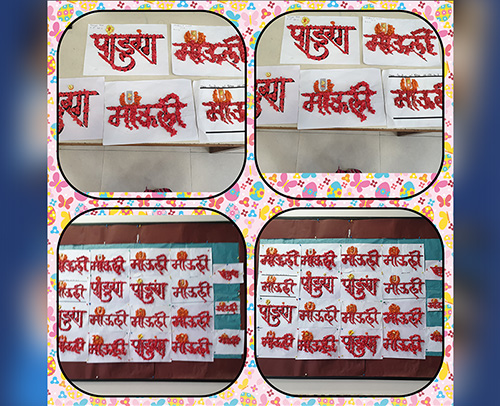 पांडुरंग माऊली
माऊली
पांडुरंग माऊली
माऊली
माऊली माऊली माऊली माऊली
माऊली पांडुरंग पांडुरंग माऊली
पांडुरंग माऊली माऊली माऊली माऊली
माऊली माऊली पांडुरंग माऊली
माऊली माऊली माऊली माऊली
माऊली पांडुरंग पांडुरंग माऊली
पांडुरंग माऊली माऊली माऊली माऊली
माऊली माऊली पांडुरंग माऊली